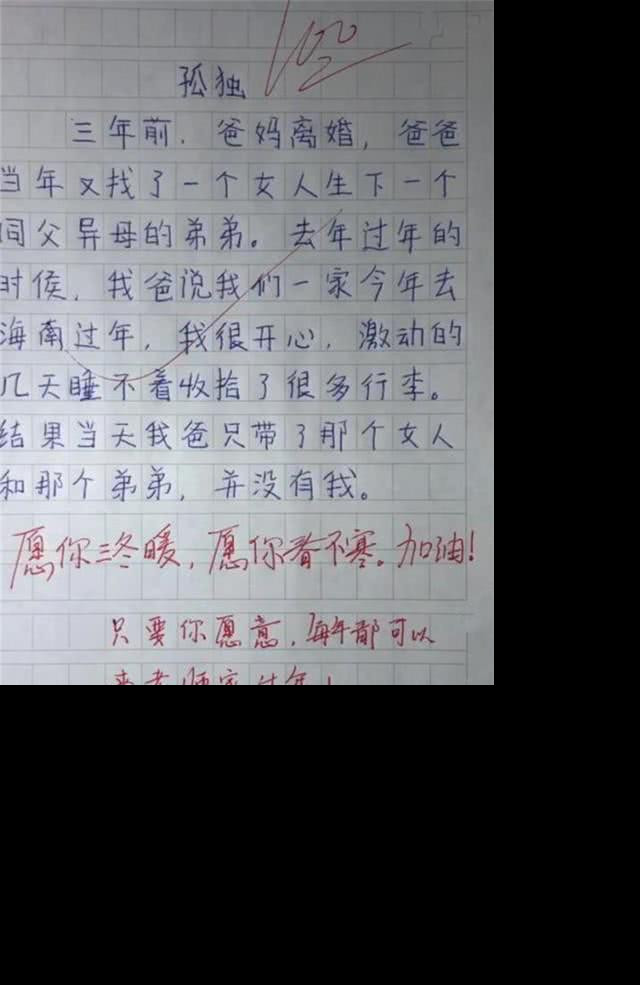 100
孤独
三年前，爸妈离婚，爸爸
当年又找了一个女人生下一个
同父异母的弟弟。去年过年的
时侯，我爸说我们一家今年去
海南过年，我很开心，激动的
几天睡不着收拾了很多行李。
结果当天我爸只带了那个女人
和那个弟弟，并没有我。
愿你三冬暖，愿你春不寒。加油！
只要你愿意，每年都可以
来老师家过年！